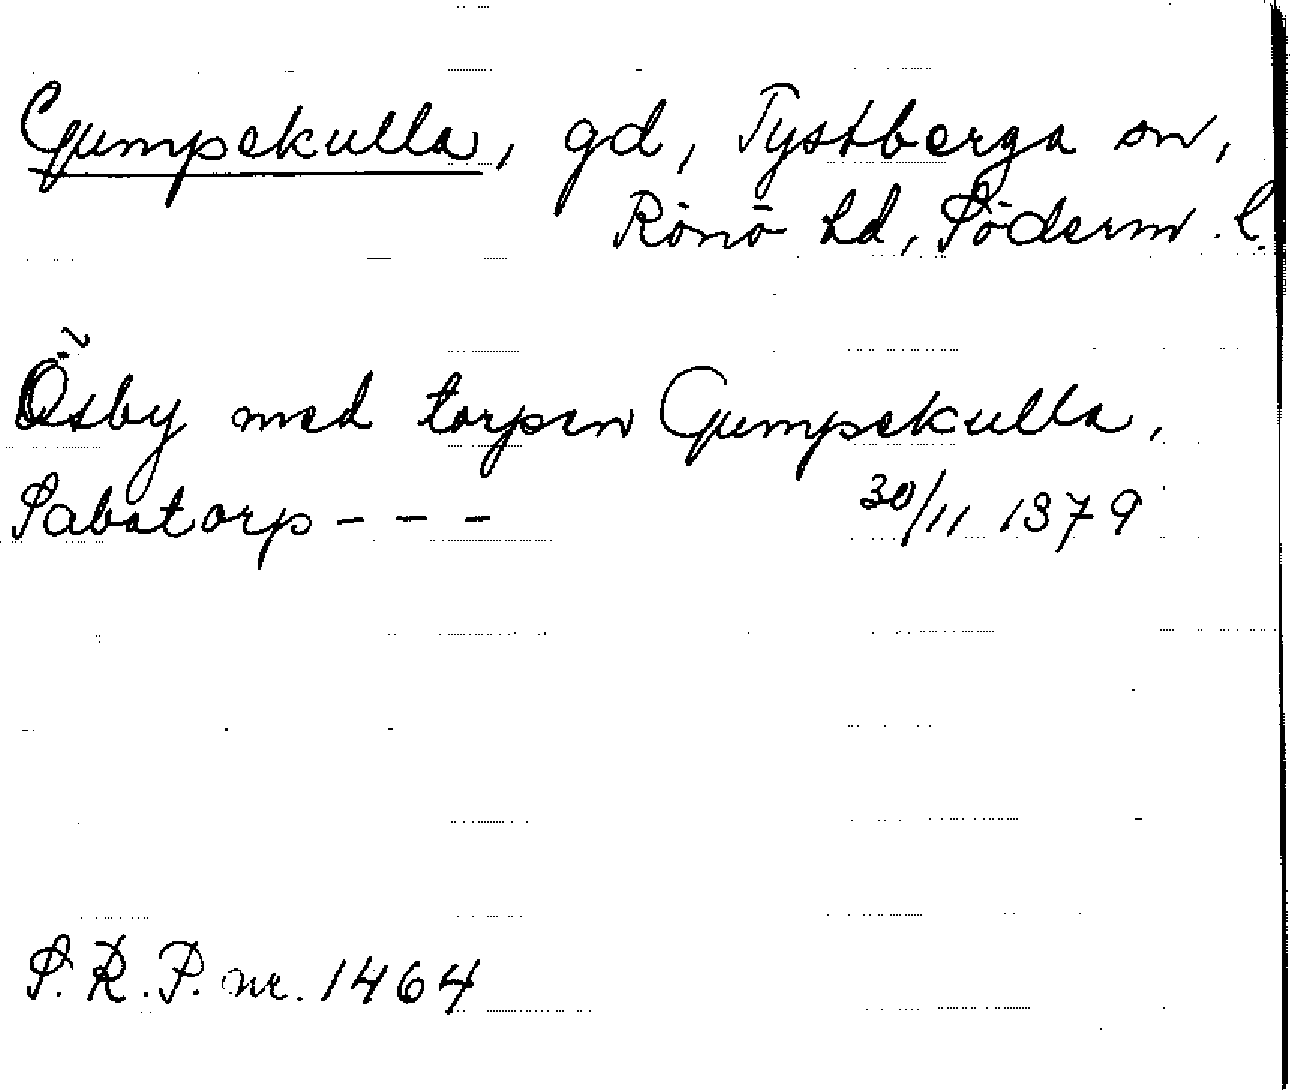 Gumpekulla, gd, Tystberga sn,
Rönö hd, Söderm. l.
Ösby med torpen Gumpekulla,
Sabstorp - - - 30/11 1379
S.R.P. nr. 1464